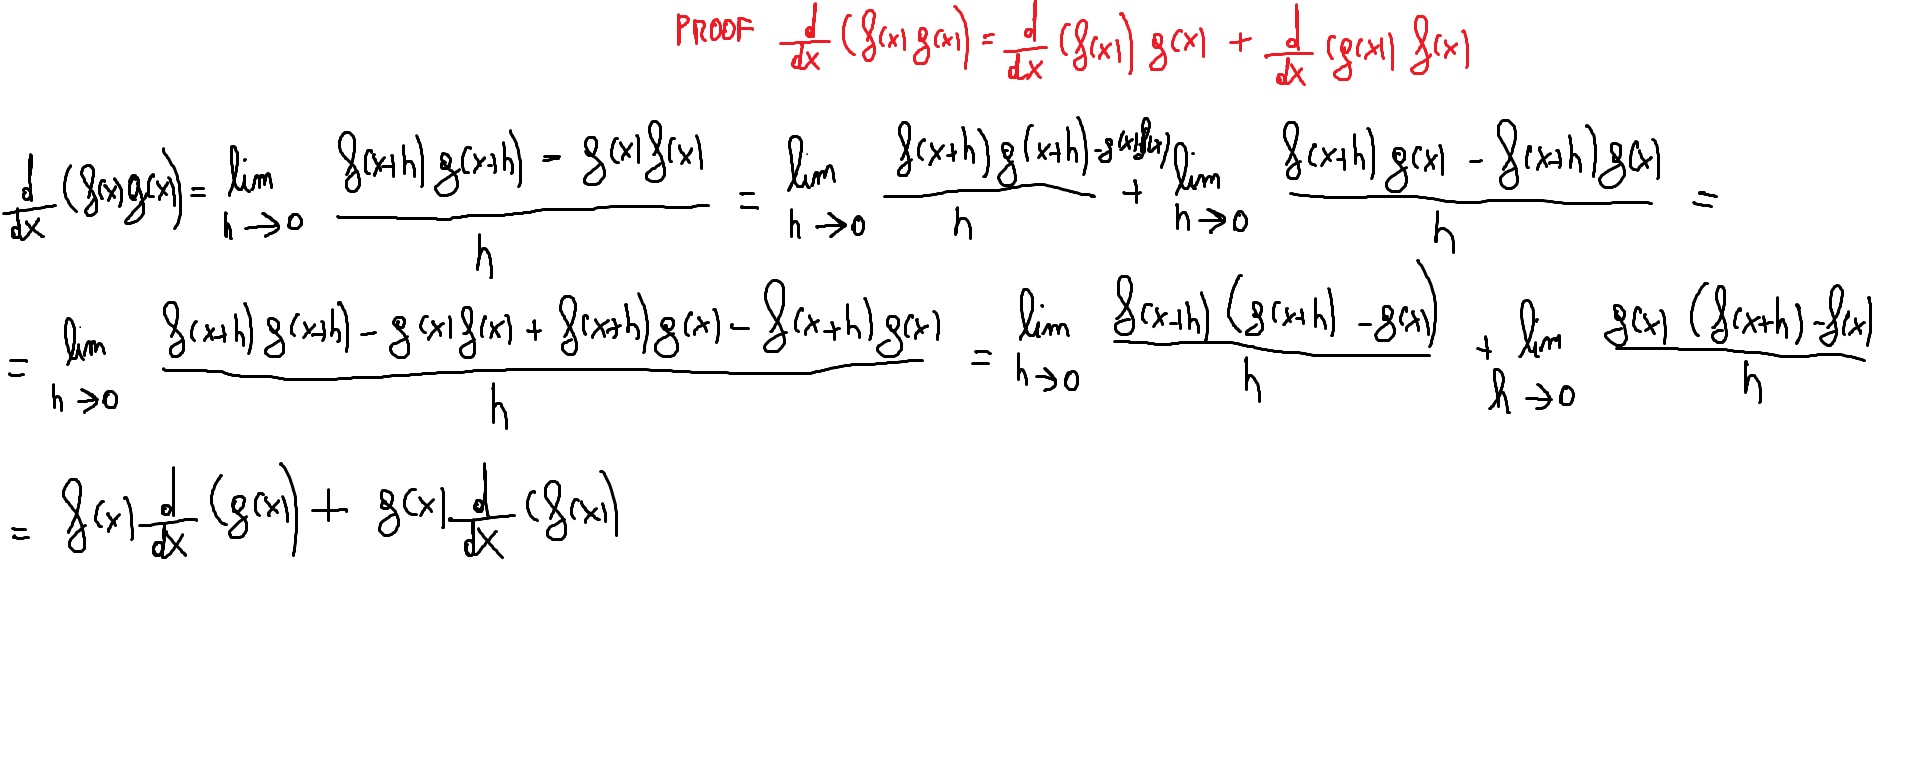 PROOF d/dx (f(x) g(x)) = d/dx (f(x)) g(x) + d/dx (g(x)) f(x)
d/dx (f(x) g(x)) = lim h→0 f(x+h) g(x+h) - g(x) f(x) / h = lim h→0 f(x+h) g(x+h) - g(x) f(x) / h + lim h→0 f(x+h) g(x) - f(x+h) g(x) / h =
= lim h→0 f(x+h) g(x+h) - g(x) f(x) + f(x+h) g(x) - f(x+h) g(x) / h = lim h→0 f(x+h) (g(x+h) - g(x)) / h + lim h→0 g(x) (f(x+h) - f(x) / h
= f(x) d/dx (g(x)) + g(x) d/dx (f(x))